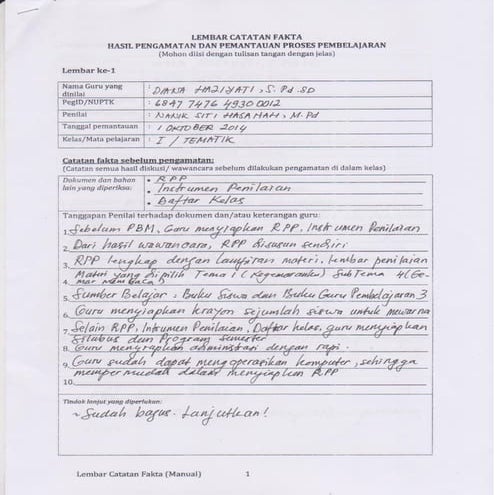 LEMBAR CATATAN FAKTA
HASIL PENGAMATAN DAN PEMANTAUAN PROSES PEMBELAJARAN
(Mohon diisi dengan tulisan tangan dengan jelas)
Lembar ke-1
Nama Guru yang dinilai : DIANA HAZIYATI, S.Pd.SD
PegID/NUPTK : 6847 7476 4930 0012
Penilai : NANIK SITI HASANAH, M.Pd
Tanggal pemantauan : 1 OKTOBER 2014
Kelas/Mata pelajaran : I / TEMATIK
Catatan fakta sebelum pengamatan:
(Catatan semua hasil diskusi/ wawancara sebelum dilakukan pengamatan di dalam kelas)
Dokumen dan bahan lain yang diperiksa: • RPP
• Instrumen Penilaian
• Daftar Kelas
Tanggapan Penilai terhadap dokumen dan/atau keterangan guru:
1. Sebelum PBM, Guru menyiapkan RPP, Instrumen Penilaian
2. Dari hasil wawancara, RPP disusun sendiri
3. RPP lengkap dengan lampiran materi, lembar penilaian
4. Materi yang dipilih Tema 1 (Kegemaranku) SubTema 4 (Gemar membaca)
5. Sumber Belajar : Buku Siswa dan Buku Guru Pembelajaran 3
6. Guru menyiapkan krayon sejumlah siswa untuk mewarna
7. Selain RPP, Intrumen Penilaian, Daftar kelas, guru menyiapkan
Silabus dan Program Semester
8. Guru menyiapkan administrasi dengan rapi.
9. Guru sudah dapat mengoperasikan komputer, sehingga
mempermudah dalam menyiapkan RPP
10.
Tindak lanjut yang diperlukan:
~ Sudah bagus. Lanjutkan!
Lembar Catatan Fakta (Manual) 1